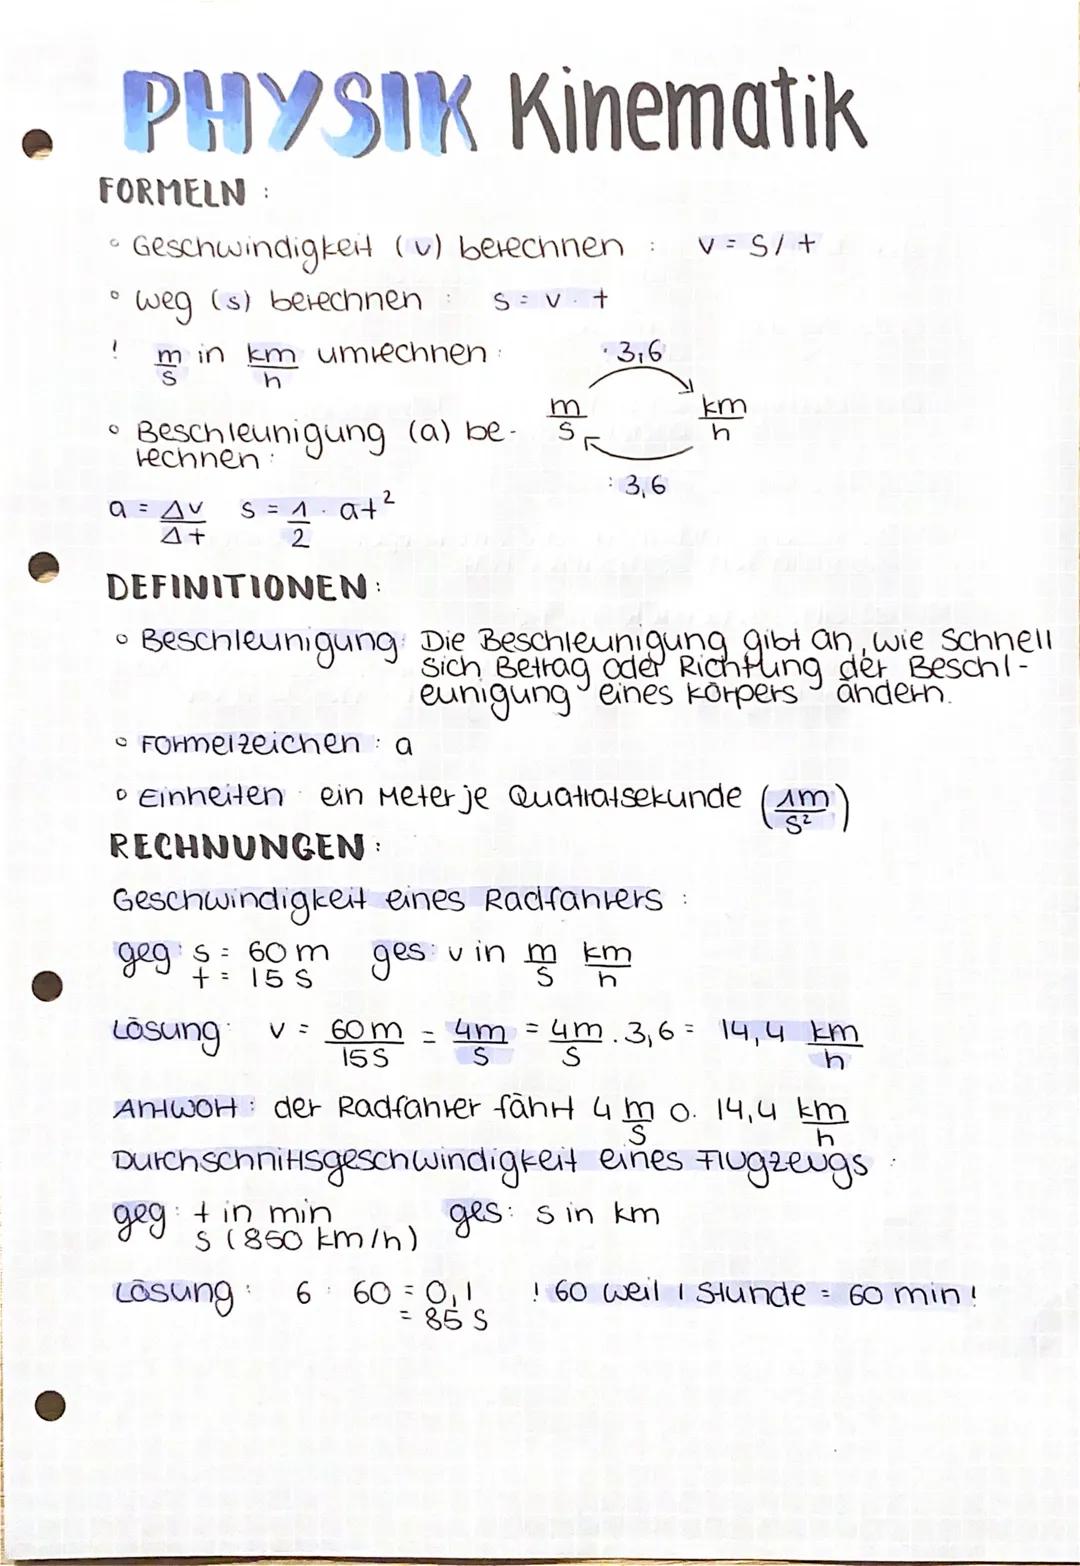 PHYSIK Kinematik
FORMELN :
° Geschwindigkeit (v) berechnen : v = s / t
° weg (s) berechnen : s = v · t
! m/s in km/h umrechnen :
· 3,6
m/s km/h
: 3,6
° Beschleunigung (a) be-
rechnen :
a = Δv/Δt s = 1/2 · at²
DEFINITIONEN :
° Beschleunigung: Die Beschleunigung gibt an, wie schnell
sich Betrag oder Richtung der Beschl-
eunigung eines körpers ändern.
° Formelzeichen : a
° Einheiten : ein Meter je Quatratsekunde (1m/s²)
RECHNUNGEN :
Geschwindigkeit eines Radfahrers :
geg: s = 60 m ges: v in m/s km/h
t = 15 s
Lösung: v = 60m/15s = 4m/s = 4m/s · 3,6 = 14,4 km/h
Antwort : der Radfahrer fährt 4 m/s o. 14,4 km/h
Durchschnittsgeschwindigkeit eines Flugzeugs :
geg : t in min ges: s in km
s (850 km/h)
Lösung : 6 : 60 = 0,1 ! 60 weil 1 Stunde = 60 min !
= 85 s